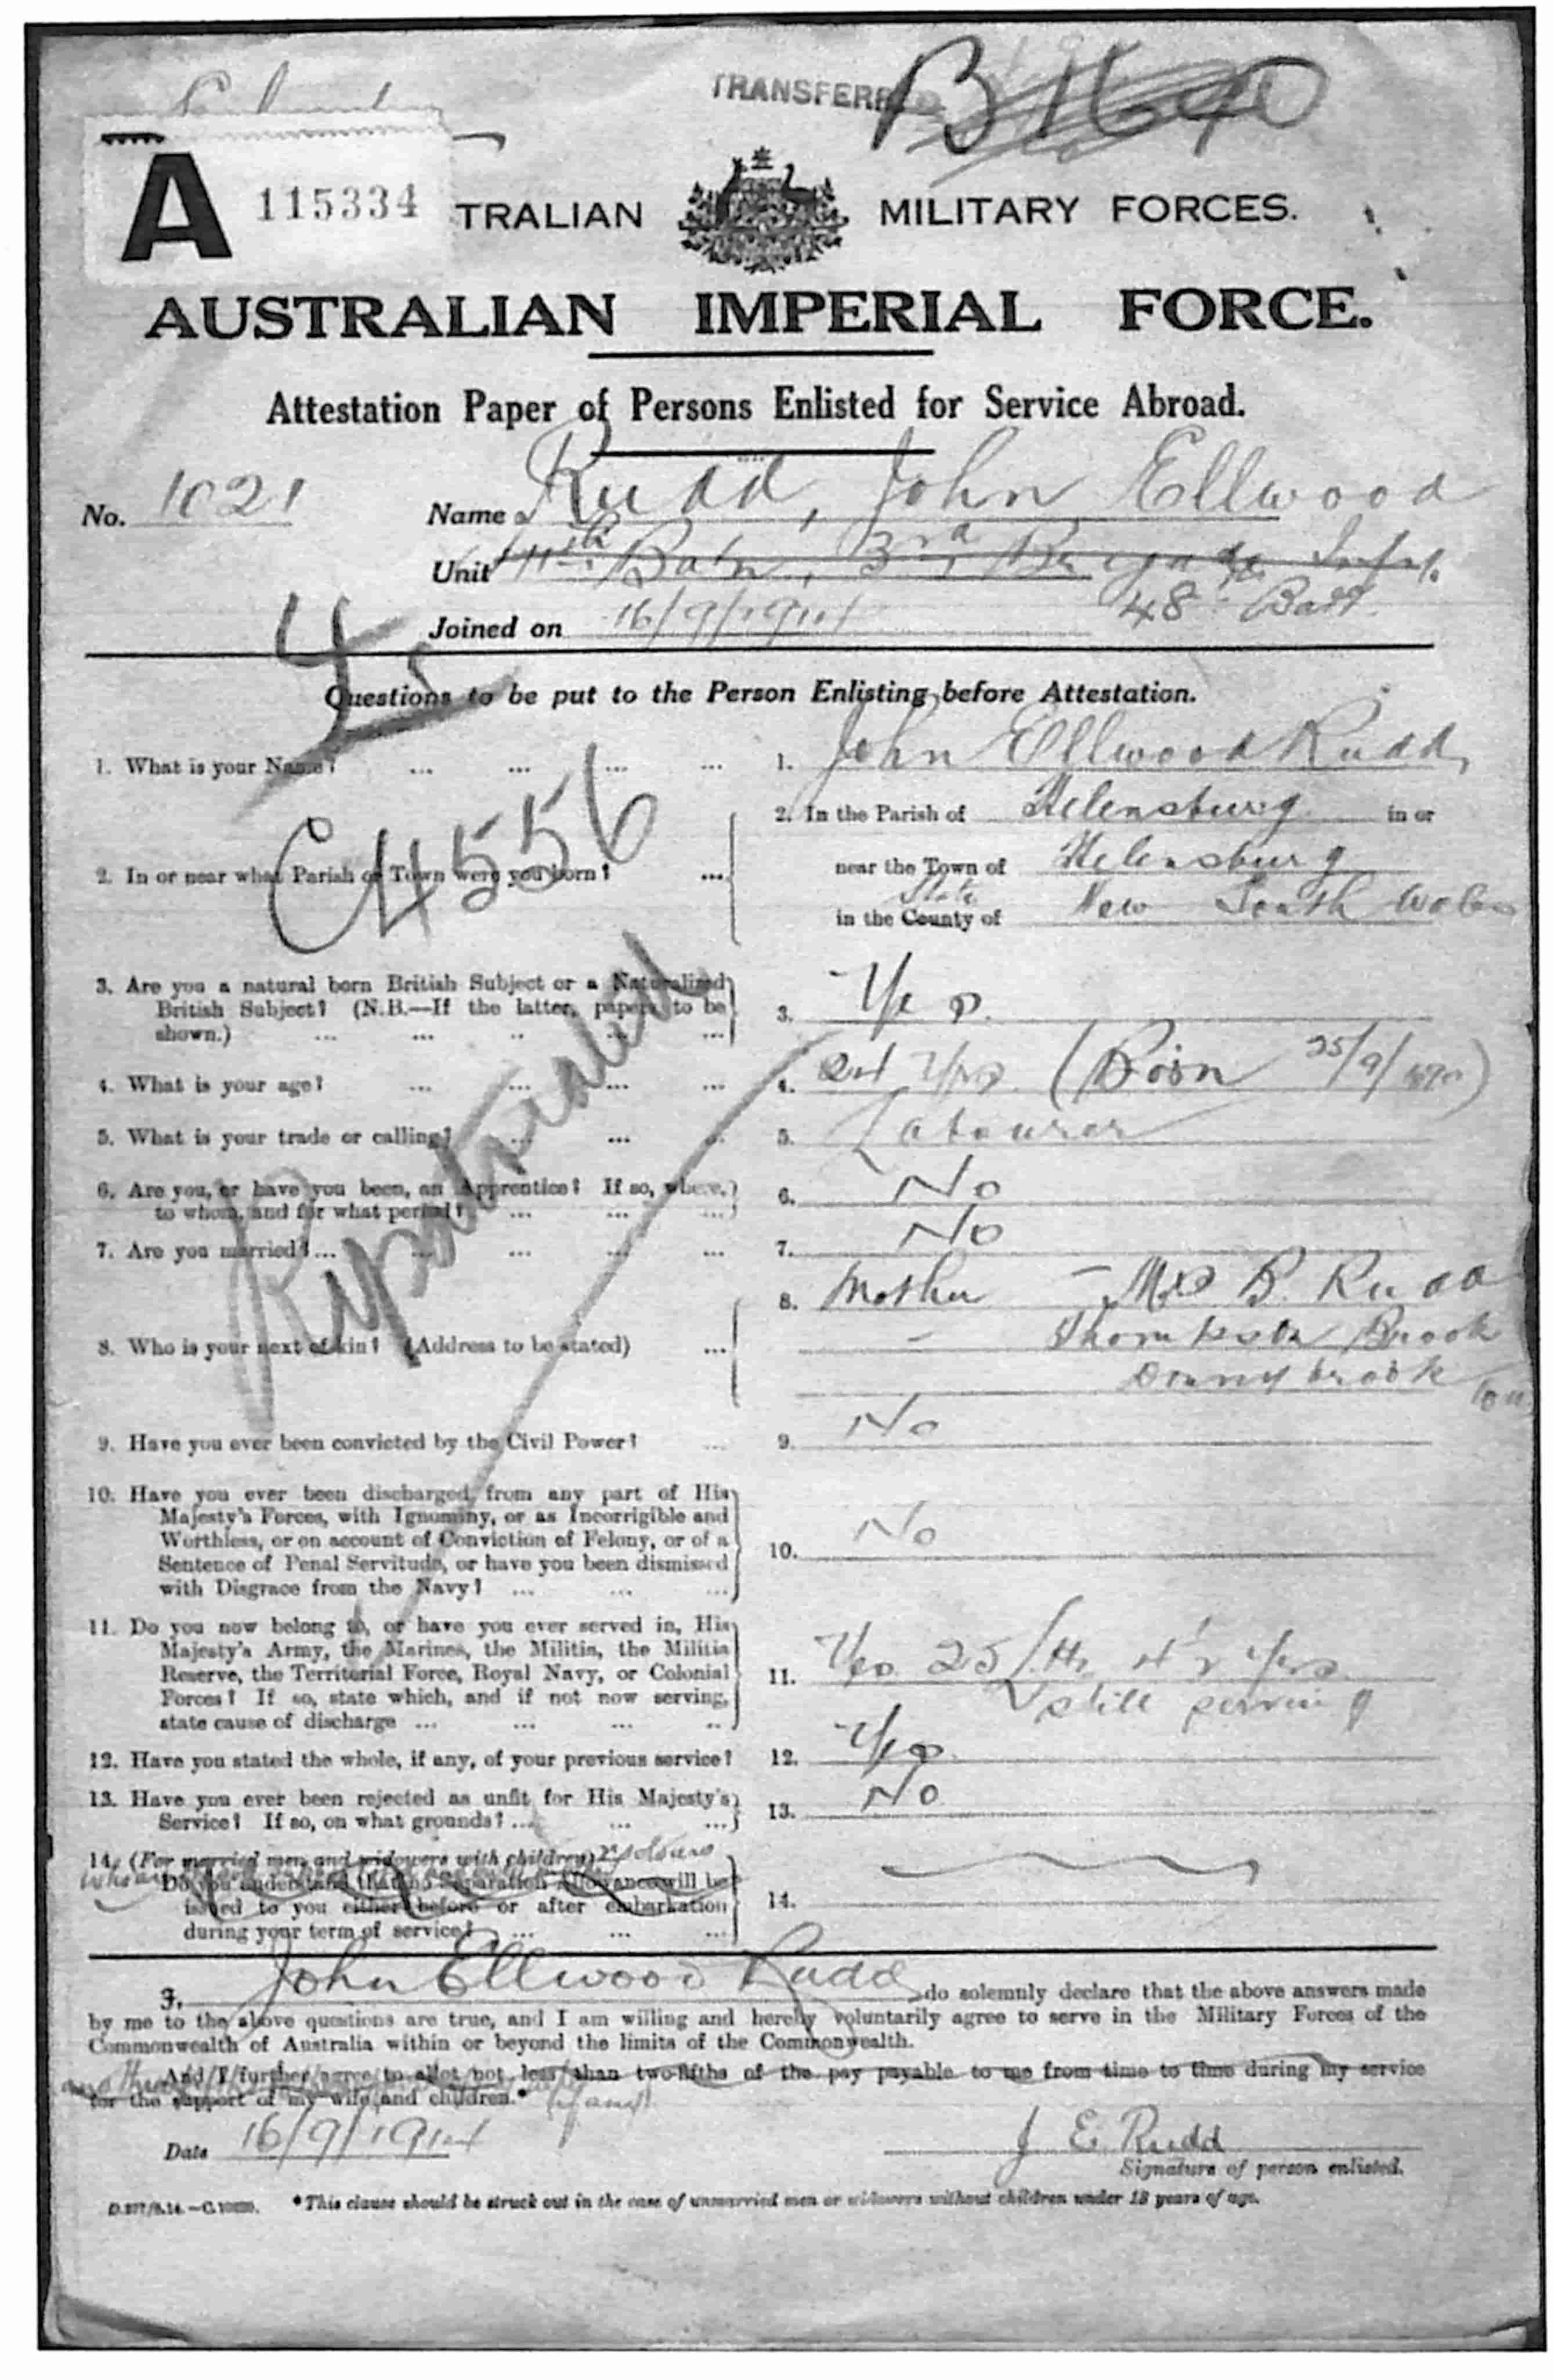 TRANSFERRED
B 1640
A 115334 TRALIAN MILITARY FORCES.
AUSTRALIAN IMPERIAL FORCE.
Attestation Paper of Persons Enlisted for Service Abroad.
No. 1021 Name Rudd, John Ellwood
Unit 11th Batn, 3rd Brigade Inf.
48th Batt.
Joined on 16/9/1914
Questions to be put to the Person Enlisting before Attestation.
1. What is your Name? ... ... ... ... 1. John Ellwood Rudd
C4556
2. In or near what Parish or Town were you born? ... 2. In the Parish of Helensburg in or
near the Town of Helensburg
State
in the County of New South Wales
3. Are you a natural born British Subject or a Naturalized
British Subject? (N.B.—If the latter, papers to be
shown.) ... ... .. ... ... 3. Yes
4. What is your age? ... ... ... ... 4. 24 Yrs (Born 25/9/1890)
5. What is your trade or calling? ... ... .. 5. Labourer
6. Are you, or have you been, an Apprentice? If so, where,
to whom, and for what period? ... ... ... 6. No
7. Are you married? ... ... ... ... ... 7. No
Repatriated
8. Who is your next of kin? (Address to be stated) ... 8. Mother – Mrs B. Rudd
Brook
Donnybrook
9. Have you ever been convicted by the Civil Power? ... 9. No
10. Have you ever been discharged from any part of His
Majesty's Forces, with Ignominy, or as Incorrigible and
Worthless, or on account of Conviction of Felony, or of a
Sentence of Penal Servitude, or have you been dismissed
with Disgrace from the Navy? ... ... ... 10. No
11. Do you now belong to, or have you ever served in, His
Majesty's Army, the Marines, the Militia, the Militia
Reserve, the Territorial Force, Royal Navy, or Colonial
Forces? If so, state which, and if not now serving,
state cause of discharge ... ... ... .. 11. Yes 25 Yrs
still serving
12. Have you stated the whole, if any, of your previous service? 12. Yes
13. Have you ever been rejected as unfit for His Majesty's
Service? If so, on what grounds? ... ... ... 13. No
14. (For married men and widowers with children)
Do you understand that no Separation Allowance will be
issued to you either before or after embarkation
during your term of service? ... ... ... 14.
I, John Ellwood Rudd do solemnly declare that the above answers made
by me to the above questions are true, and I am willing and hereby voluntarily agree to serve in the Military Forces of the
Commonwealth of Australia within or beyond the limits of the Commonwealth.
And I further agree to allot not less than two-fifths of the pay payable to me from time to time during my service
for the support of my wife and children.*
Date 16/9/1914 J E Rudd
Signature of person enlisted.
*This clause should be struck out in the case of unmarried men or widowers without children under 18 years of age.